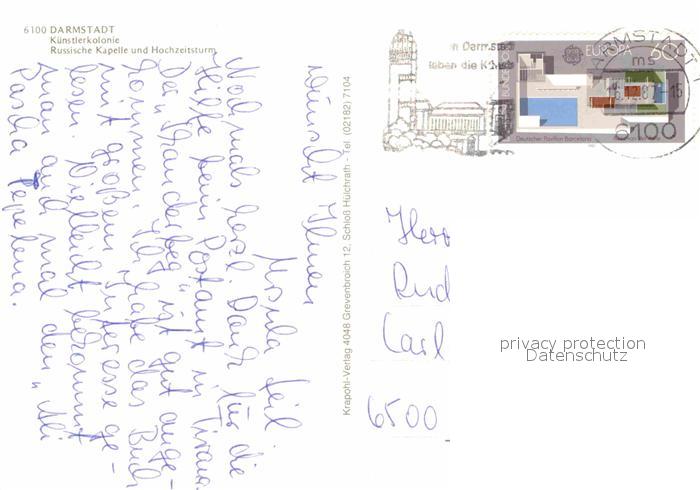 6100 DARMSTADT
Künstlerkolonie
Russische Kapelle und Hochzeitsturm
Nochmals herzl. Dank für die
Hilfe beim Postamt in Tirana.
Der "Skanderbeg" ist gut ange-
kommen. Ich habe das Buch
mit großem Interesse ge-
lesen. Vielleicht bekommt
man auch mal den "Ali
Pascha Tepelena.
wünscht Ihnen
Ursula
Krapohl-Verlag 4048 Grevenbroich 12, Schloß Hülchrath - Tel. (02182) 7104
In Darmstadt
leben die Künste
DARMSTADT
ms
-15
6100
EUROPA 60
DEUTSCHE BUNDESPOST
Deutscher Pavillon Barcelona
Herr
Rud
Carl
6500
privacy protection
Datenschutz